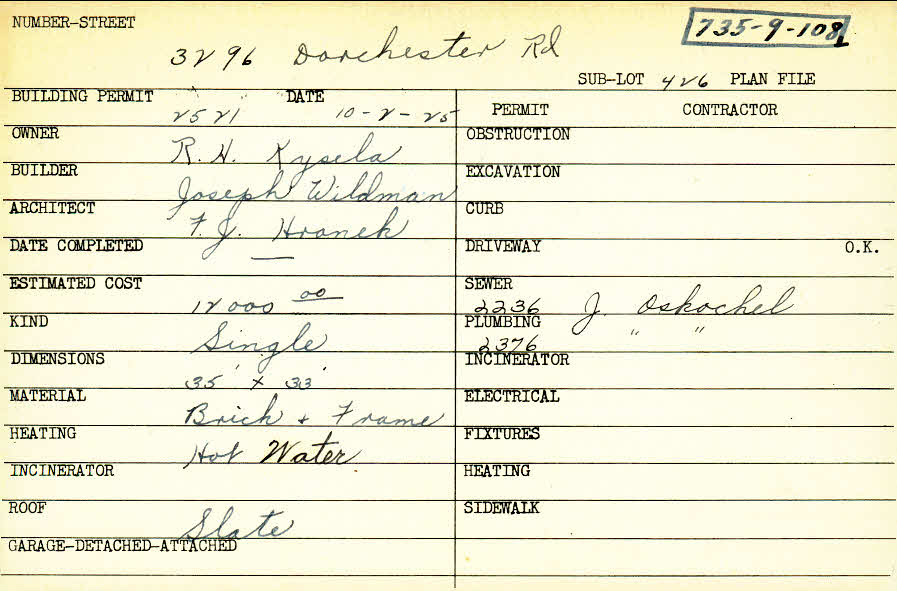 NUMBER-STREET
735-9-108
3296 Dorchester Rd
SUB-LOT 426 PLAN FILE
BUILDING PERMIT DATE
2521 10-2-25
PERMIT CONTRACTOR
OWNER R. H. Kysela
OBSTRUCTION
BUILDER Joseph Wildman
EXCAVATION
ARCHITECT F. J. Hronek
CURB
DATE COMPLETED —
DRIVEWAY O.K.
ESTIMATED COST 12000 00
SEWER 2236 J. Oskochel
KIND Single
PLUMBING 2376 " "
DIMENSIONS 35' x 33'
INCINERATOR
MATERIAL Brick + Frame
ELECTRICAL
HEATING Hot Water
FIXTURES
INCINERATOR
HEATING
ROOF Slate
SIDEWALK
GARAGE-DETACHED-ATTACHED